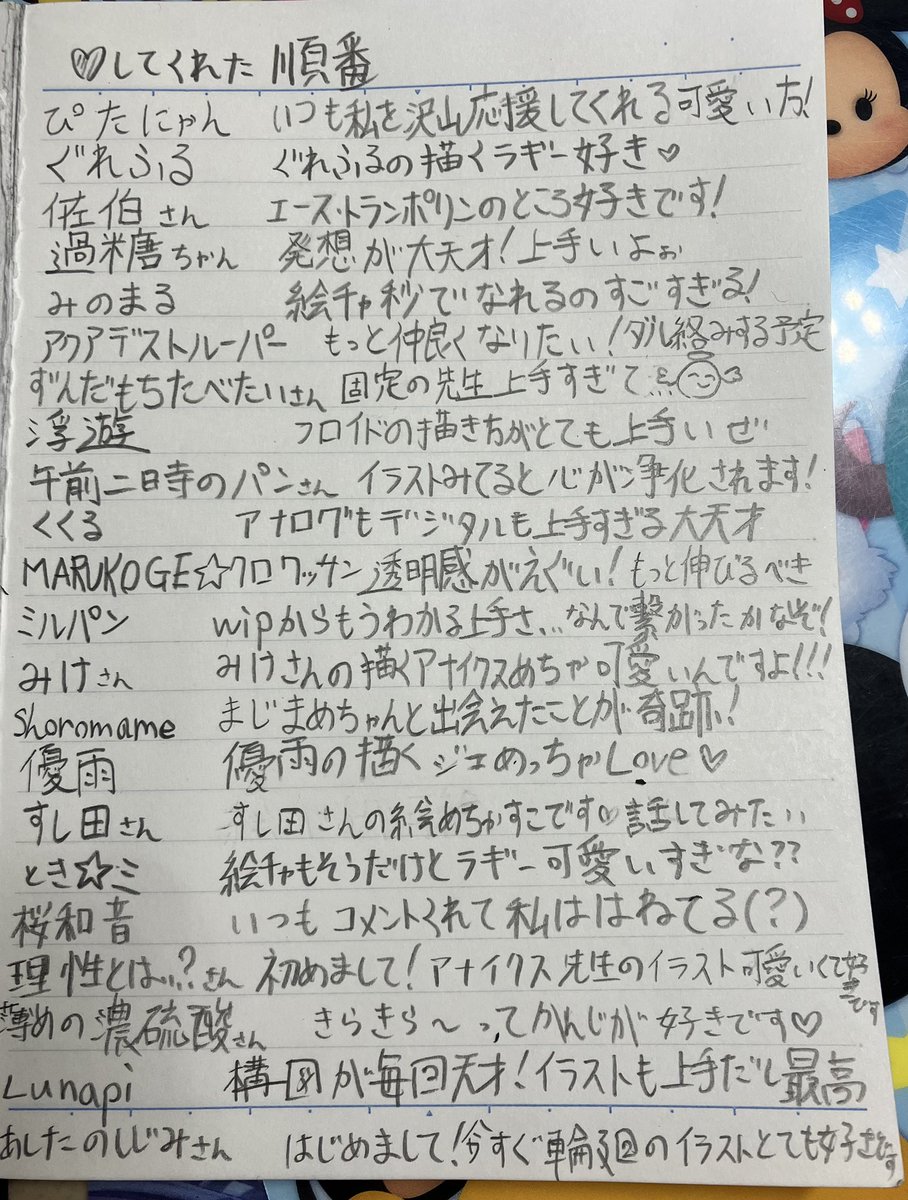 ♡してくれた 順番
ぴたにゃん いつも私を沢山応援してくれる可愛い方!
ぐれふる ぐれふるの描くラギー好き♡
佐伯さん エース・トランポリンのところ好きです!
過糖ちゃん 発想が大天才!上手いよぉ
みのまる 絵チャ秒でなれるのすごすぎる!
アクアデストルーパー もっと仲良くなりたい!ダル絡みする予定
ずんだもちたべたいさん 固定の先生上手すぎて
浮遊 フロイドの描き方がとても上手いぜ
午前二時のパンさん イラストみてると心が浄化されます!
くくる アナログもデジタルも上手すぎる大天才
MARUKOGE☆クロワッサン 透明感がえぐい!もっと伸びるべき
ミルパン wipからもうわかる上手さ...なんで繋がったかなぞ!
みけさん みけさんの描くアナイクスめちゃ可愛いんですよ!!!
Shoromame まじまめちゃんと出会えたことが奇跡!
優雨 優雨の描くジェめっちゃLove♡
すし田さん すし田さんの絵めちゃすこです♡話してみたい
とき☆ミ 絵チャもそうだけどラギー可愛いすぎな??
桜和音 いつもコメントくれて私ははねてる(?)
理性とは...?さん 初めまして!アナイクス先生のイラスト可愛いくて好きです
薄めの濃硫酸さん きらきら〜ってかんじが好きです♡
Lunapi 構図が毎回天才!イラストも上手だし最高
あしたのしじみさん はじめまして!今すぐ輪廻のイラストとても好きです